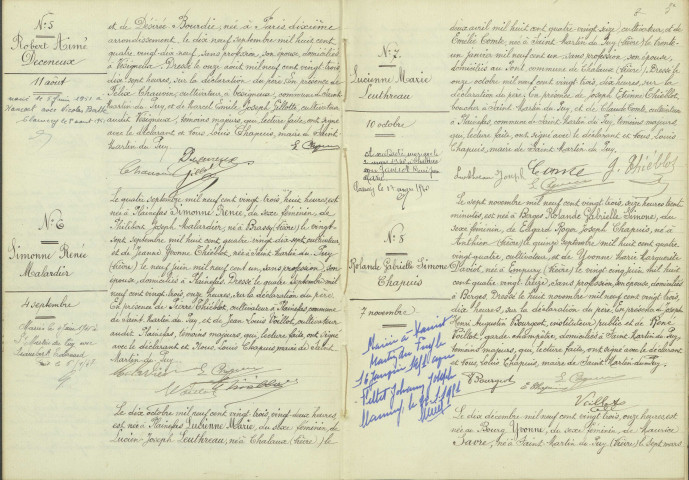 N° 5
Robert Aimé
Deconeux
11 août
et de Désirée Bourdiu, née à Paris dixième
arrondissement, le dix neuf septembre mil huit cent
quatre vingt dix neuf, sans profession, son épouse, domiciliés
à Vésigneux. Dressé le onze août mil neuf cent vingt trois
dix sept heures, sur la déclaration du père. En présence de
cultivateur à Vésigneux, commune de Saint
Martin du Puy, et de Marcel Emile Joseph Gillotte, cultivateur
audit Vésigneux, témoins majeurs, qui, lecture faite, ont signé
avec le déclarant et Nous, Louis Chapuis, maire de Saint
Martin du Puy.
N° 6
Simonne Renée
Malardier
4 septembre
Le quatre septembre mil neuf cent vingt trois, huit heures est
née à Plainefas Simonne Renée, du sexe féminin, de
Joseph Malardier, né à Brassy (Nièvre) le vingt
sept septembre mil huit cent quatre vingt dix sept, cultivateur
et de Jeanne Yvonne Thiéblot, née à Saint Martin du Puy
(Nièvre) le neuf juin mil neuf cent un, sans profession, son
épouse, domiciliés à Plainefas. Dressé le quatre septembre mil
neuf cent vingt trois, onze heures, sur la déclaration du père.
En présence de Pierre Thiéblot, cultivateur à Plainefas commune
de Saint Martin du Puy, et de Jean Louis Voillot, cultivateur
audit Plainefas, témoins majeurs, qui, lecture faite, ont signé
avec le déclarant et Nous, Louis Chapuis, maire de Saint
Martin du Puy.
Le dix octobre mil neuf cent vingt trois, vingt deux heures
est née à Plainefas Lucienne Marie, du sexe féminin, de
Lucien Joseph Leuthreau, né à Chalaux (Nièvre) le
5
N° 7
Lucienne Marie
Leuthreau
10 octobre
deux avril mil huit cent quatre vingt seize, cultivateur, et de
Emilie Comte, née à Saint Martin du Puy (Nièvre) le trente
un janvier mil neuf cent un, sans profession, son épouse,
domiciliés au commune de Chalaux (Nièvre). Dressé le
onze octobre mil neuf cent vingt trois, dix heures, sur la
déclaration du père. En présence de Joseph Etienne Thiéblot,
boucher à Saint Martin du Puy, et de Claude Comte, cultivateur
à Plainefas, commune de Saint Martin du Puy, témoins majeurs
qui, lecture faite, ont signé avec le déclarant et Nous, Louis
Chapuis, maire de Saint Martin du Puy.
Leuthreau Joseph
Comte
J. Thiéblot
N° 8
Rolande Gabrielle Simone
Chapuis
7 novembre
Le sept novembre mil neuf cent vingt trois, onze heures trente
minutes, est née à Berges Rolande Gabrielle Simone, du
sexe féminin, de Edgard Joseph Chapuis, né à
Anthien (Nièvre) le quinze septembre mil huit cent quatre
vingt quatre, cultivateur, et de Yvonne Marie Marguerite
née à Empury (Nièvre) le vingt cinq juin mil huit
cent quatre vingt treize, sans profession, son épouse, domiciliés
à Berges. Dressé le huit novembre mil neuf cent vingt trois,
dix heures, sur la déclaration du père. En présence de Joseph
Henri Augustin Bourgeot, instituteur public et de René
Voillot, garde champêtre, domiciliés à Saint Martin du Puy,
témoins majeurs, qui, lecture faite, ont signé avec le déclarant
et Nous, Louis Chapuis, maire de Saint Martin du Puy.
Bourgeot
Voillot
Le dix décembre mil neuf cent vingt trois, onze heures est
née au Bourg Yvonne, du sexe féminin, de Maurice
né à Saint Martin du Puy (Nièvre) le sept mars